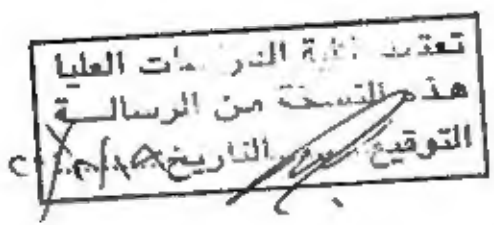 تعتمد كلية الدراسات العليا
هذه النسخة من الرسالـــة
التوقيع التاريخ